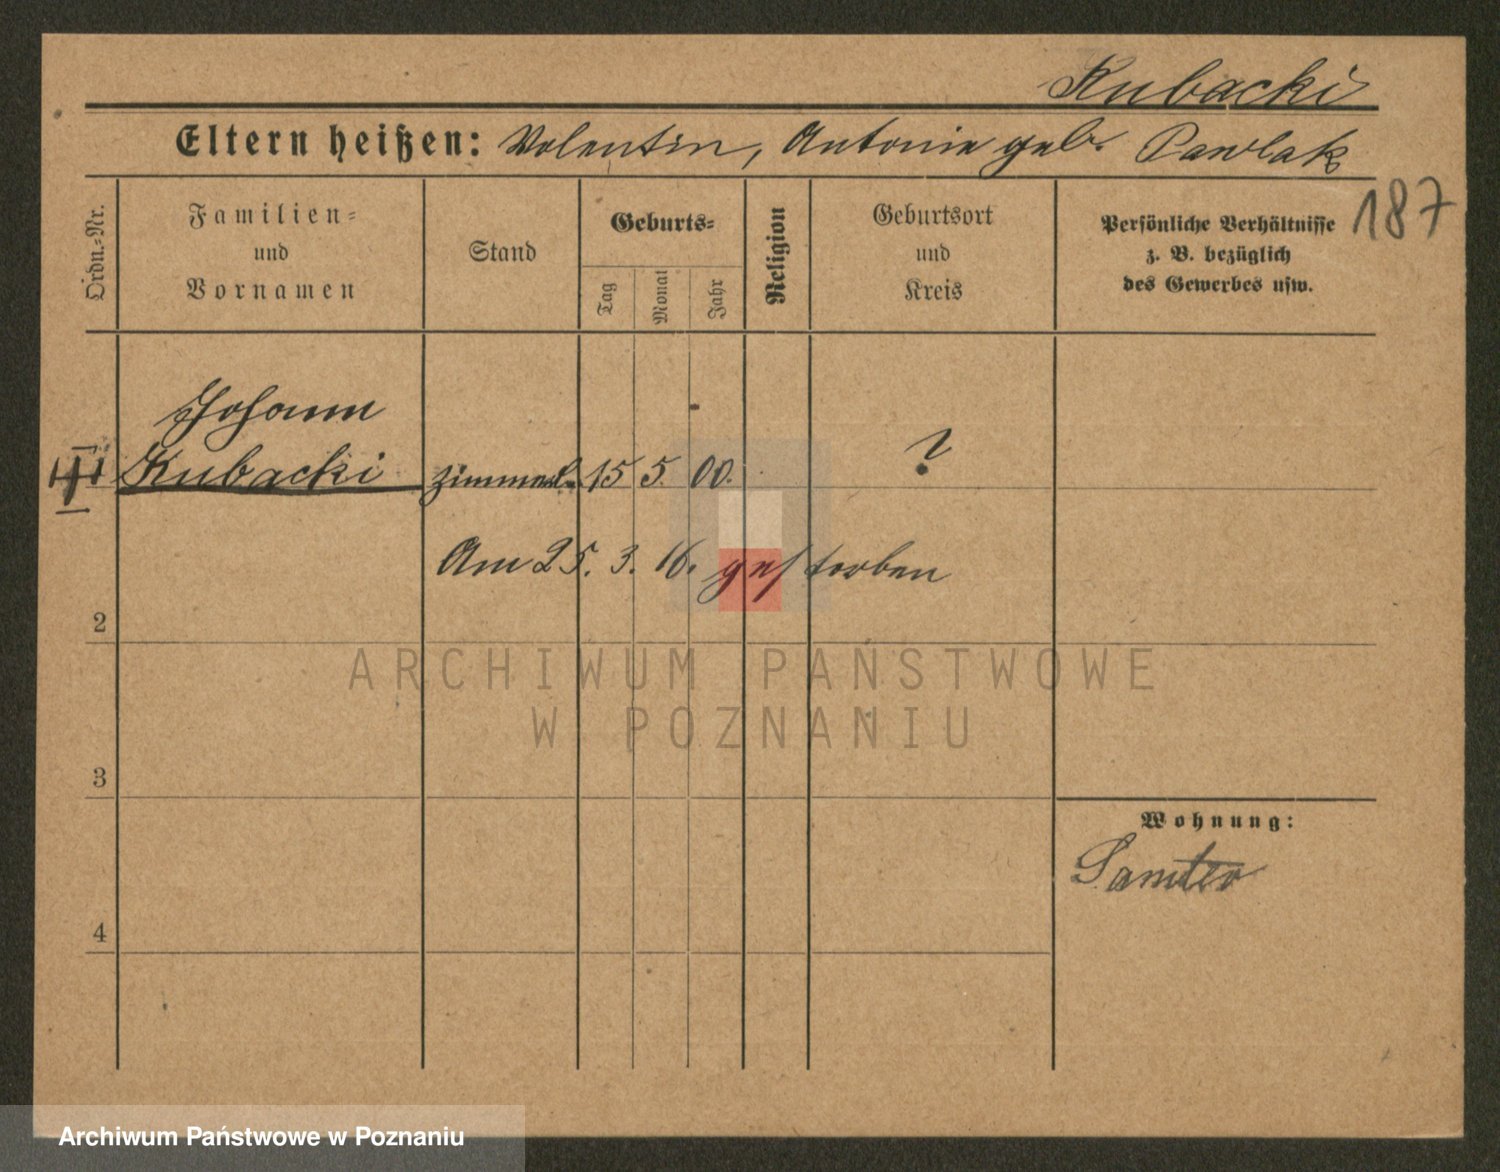 Kubacki
Eltern heißen: Valentin, Antonie geb. Pawlak
187
Ordn.-Nr.
Familien-
und
Vornamen
Stand
Geburts-
Tag
Monat
Jahr
Religion
Geburtsort
und
Kreis
Persönliche Verhältnisse
z. B. bezüglich
des Gewerbes usw.
Johann
Kubacki 15 5. 00. ?
Am 25. 3. 16. gestorben
2
ARCHIWUM PAŃSTWOWE
W POZNANIU
3
Wohnung:
Samter
4
Archiwum Państwowe w Poznaniu